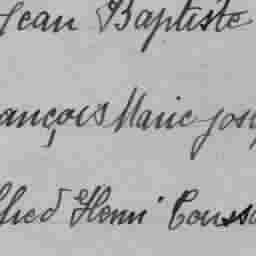 Jean Baptiste
ançois Marie Jos
fred Henri Couss